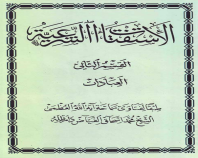 الاستفتاءات الشرعية
القسم الثاني
العبادات
طبقاً لفتاوى سماحة آية الله العظمى
الشيخ محمد إسحاق الفياض دام ظله